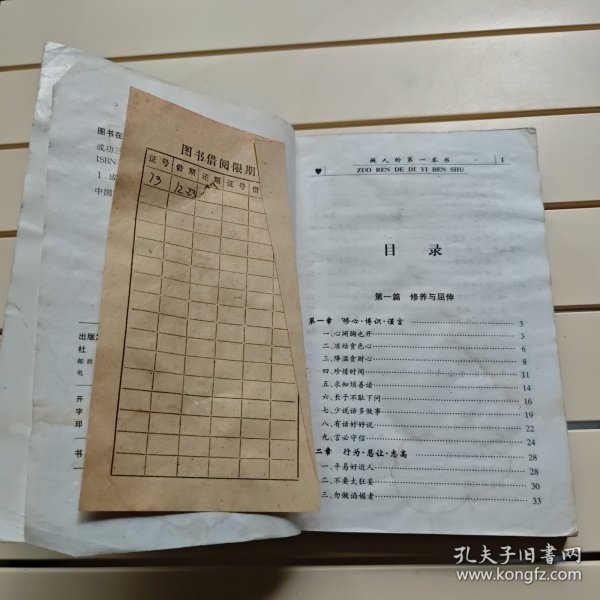 图书在
成功三
ISBN
1．成
中国
出版发
社
邮政
电
开
字
印
书
图书借阅限期
证号 借期 还期 证号 借
73 12.23
做人的第一本书 1
ZUO REN DE DI YI BEN SHU
目 录
第一篇 修养与屈伸
第一章 修心·博识·谨言 3
一、心阔胸也开 3
二、冻结贪色心 6
三、降温贪财心 8
四、珍惜时间 11
五、求知须善读 14
六、长于不耻下问 16
七、少说话多做事 19
八、有话好好说 22
九、言必守信 24
二章 行为·忍让·志高 28
一、平易好近人 28
二、不要太狂妄 30
三、勿做谄媚者 33
孔夫子旧书网
www.kongfz.com